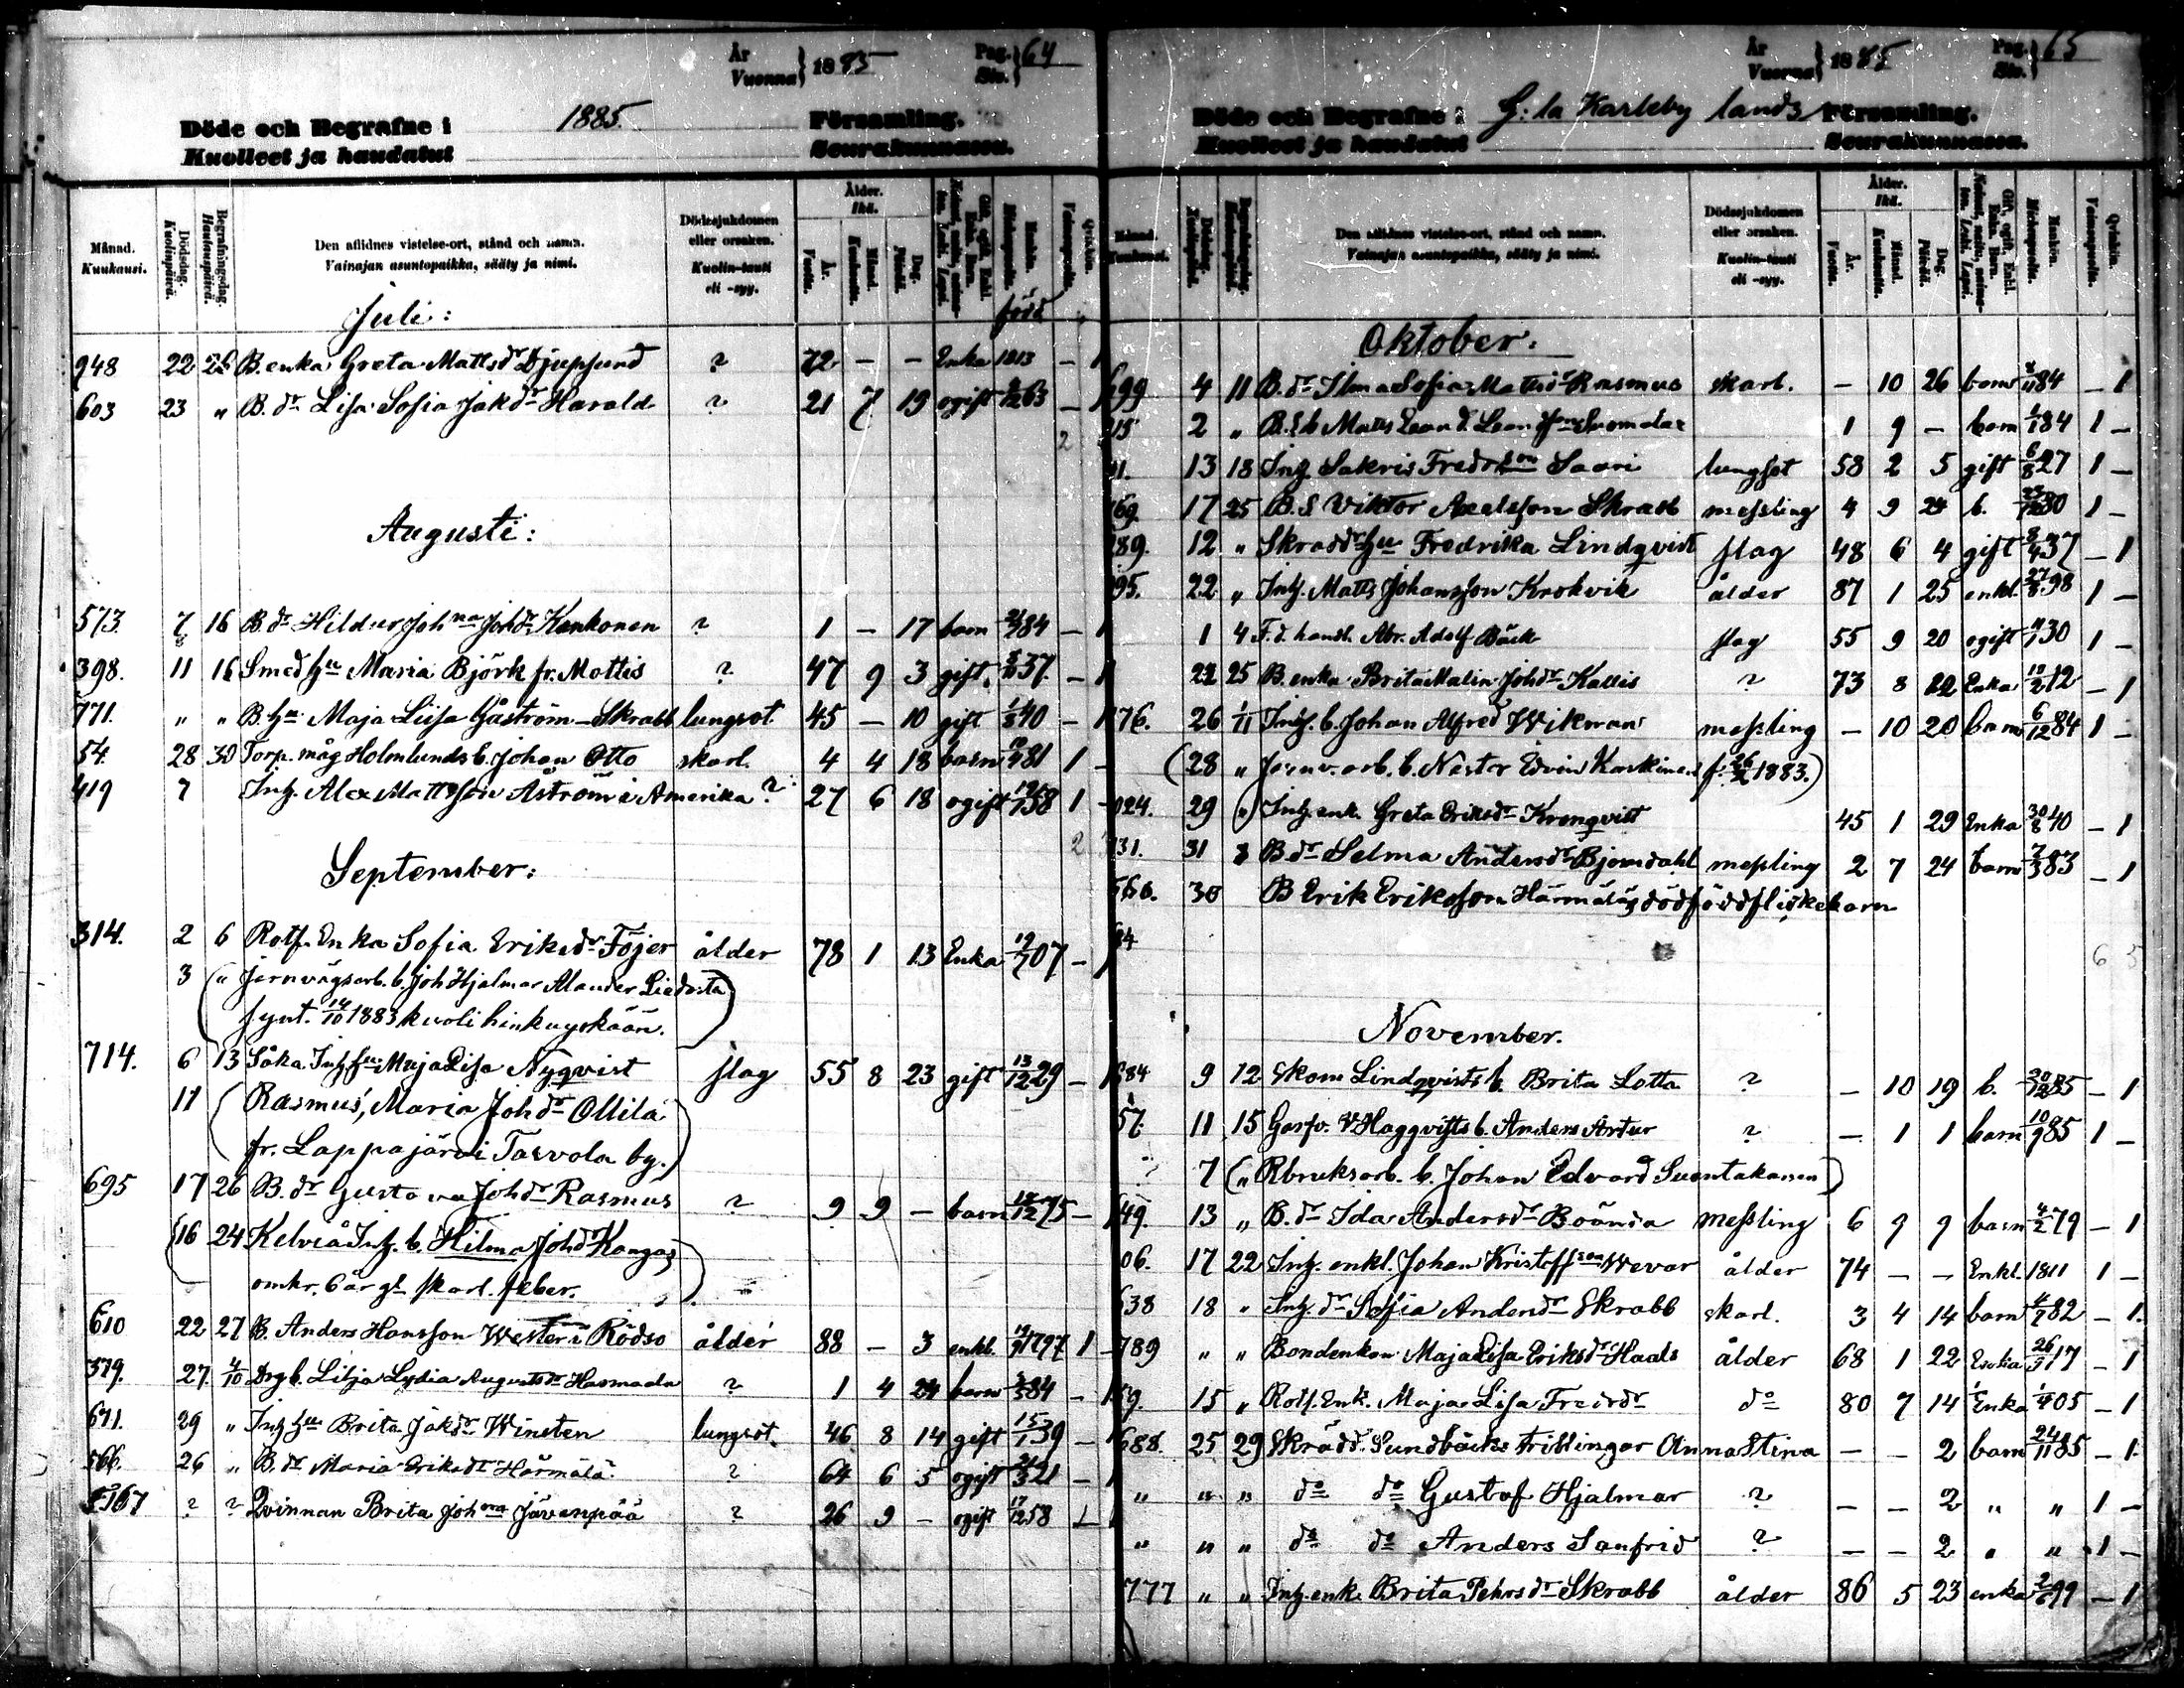 År
Vuonna } 1885 Pag. Siv. } 64
Döde och Begrafne i 1885. Församling.
Kuolleet ja haudatut Seurakunnassa.
Månad. Kuukausi.
Dödsdag. Kuolinpäivä.
Begrafningsdag. Hautauspäivä.
Den aflidnes vistelse-ort, stånd och namn.
Vainajan asuntopaikka, sääty ja nimi.
Dödssjukdomen eller orsaken.
Kuolin-tauti eli -syy.
Ålder. Ikä.
År. Vuotta.
Månad. Kuukautta.
Dag. Päivää.
Mankön. Miehenpuolta.
Qvinkön. Vaimonpuolta.
Juli: född
948 22 26 B. enka Greta Mattsdr Djupsund ? 72 - - Enka 1813 - 1
603 23 " B. dr Lisa Sofia Jakdr Harald ? 21 7 19 ogift 63 - 1
2
Augusti:
573. 7 16 B. dr Hildur Johna Johdr Kankonen ? 1 - 17 barn 84 - 1
398. 11 16 Smed hu Maria Björk fr. Mattis ? 47 9 3 gift 37. - 1
771. " " B. hu Maja Lisa Gåström-Skrabb lungsot 45 - 10 gift 1/8 40 - 1
54. 28 30 Torp. måg Holmlunds b. Johan Otto skarl. 4 4 18 barn 81 1 -
419 7 Inh. Alex Mattsson Åström i Amerika ? 27 6 18 ogift 19/1 58 1 -
2
September:
314. 2 6 Rotf. Enka Sofia Eriksdr Föjer ålder 78 1 13 Enka 19/7 07 - 1
3 (" Jernvägsarb. b. Joh Hjalmar Alander
synt. 14/10 1883 kuoli hinkuyskään.)
714. 6 13 Såka Inh hu Maja Lisa Nyqvist slag 55 8 23 gift 13/12 29 - 1
11 (Rasmus, Maria Johdr Ollila
fr. Lappajärvi Tarvola by.)
695 17 26 B. dr Gustava Johdr Rasmus ? 9 9 - barn 75 - 1
(16 24 Kelviå Inh. b. Hilma Johd Kangas
omkr. 6 år gl skarl. feber.)
610 22 27 B. Anders Hansson Wester i Rödsö ålder 88 - 3 enkl. 19/9 1797 1 -
379. 27 4/10 Drg b. Lilja Lydia Augustsdr Harmada ? 1 4 24 barn 84 - 1
671. 29 " Inh hu Brita Jakdr Winsten lungsot. 46 8 14 gift 15/1 39 - 1
566. 26 " B. dr Maria Eriksdr Härmälä ? 64 6 5 ogift 21 - 1
? ? Qvinnan Brita Johna Jävenpää ? 26 9 - ogift 58
År
Vuonna } 1885 Pag. Siv. } 65
Döde och Begrafne i G:la Karleby lands Församling.
Kuolleet ja haudatut Seurakunnassa.
Månad. Kuukausi.
Dödsdag. Kuolinpäivä.
Begrafningsdag. Hautauspäivä.
Den aflidnes vistelse-ort, stånd och namn.
Vainajan asuntopaikka, sääty ja nimi.
Dödssjukdomen eller orsaken.
Kuolin-tauti eli -syy.
Ålder. Ikä.
År. Vuotta.
Månad. Kuukautta.
Dag. Päivää.
Mankön. Miehenpuolta.
Qvinkön. Vaimonpuolta.
Oktober:
699 4 11 B. dr Ilma Sofia Mattsdr Rasmus skarl. - 10 26 barn 84 - 1
2 " Matts Leand. 1 9 - barn 1/1 84 1 -
13 18 Inh. Sakris Fredrson Saari lungsot 58 2 5 gift 6/8 27 1 -
69. 17 25 B. S Viktor Axelsson Skrabb messling 4 9 24 b. 80 1 -
89. 12 " Skradd hu Fredrika Lindqvist slag 48 6 4 gift 8/4 37 - 1
95. 22 " Inh. Matts Johansson Krokvik ålder 87 1 25 enkl. 27/8 98 1 -
1 4 F.d. handl. Abr. Adolf Bäck slag 55 9 20 ogift 11/1 30 1 -
22 25 B. enka Brita Malin Johdr Kallis ? 73 8 Enka 2 12 - 1
76. 26 1/11 Inh. b. Johan Alfred Wikman messling - 10 20 barn 6/12 84 1 -
(28 " Jernv. arb. b. Nestor Edvin Koskinen f. 1883.)
024. 29 " Inh. enk. Greta Eriksdr Kronqvist 45 1 29 Enka 30/8 40 - 1
31. 31 8 B. dr Selma Andersdr Björndahl messling 2 7 24 barn 7/3 83 - 1
566. 30 B Erik Eriksson Härmäläs dödfödd flickebarn
64
6 5
November.
684 9 12 Skom Lindqvists b. Brita Lotta ? - 10 19 b. 85 - 1
57. 11 15 Garfv. Haggqvists b. Anders Artur ? - 1 1 barn 10/9 85 1 -
7 (" Rbruksarb. b. Johan Edvard Suontakanen)
49. 13 " B. dr Ida Andersdr Böända messling 6 9 9 barn 4/2 79 - 1
06. 17 22 Inh. enkl. Johan Kristoffson Wevar ålder 74 - - Enkl. 1811 1 -
638 18 " Inh. dr Sofia Andersdr Skrabb skarl. 3 4 14 barn 4/7 82 - 1.
789 " " Bondenkan Maja Lisa Eriksdr Haals ålder 68 1 22 Enka 26/9 17 - 1
15 " Rotf. Enk. Maja Lisa Fredrdr do 80 7 14 Enka 1/4 05 - 1
688. 25 29 Skrädd. Sundbäcks trillingar Anna Stina - - 2 barn 24/11 85 - 1
" " " do do Gustaf Hjalmar ? - - 2 " " 1 -
" " " do do Anders Sanfrid ? - - 2 " " 1 -
777 " " Inh. enk. Brita Pehrsdr Skrabb ålder 86 5 23 enka 2/6 99 - 1